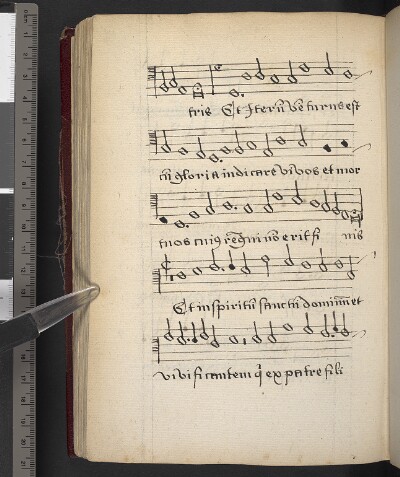 tris Et Iterū Vēturus est
cū gloria indicare vivos et mor
tuos cuiꝯ regni nō erit fi nis
Et in spiritū sanctū dominū et
vivificantem q̇ ex patre fili